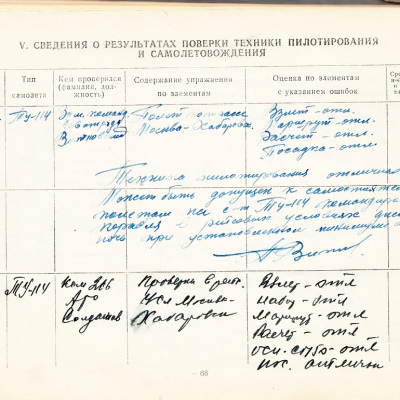 V. СВЕДЕНИЯ О РЕЗУЛЬТАТАХ ПОВЕРКИ ТЕХНИКИ ПИЛОТИРОВАНИЯ
И САМОЛЕТОВОЖДЕНИЯ
Тип самолета
Кем проверялся (фамилия, должность)
Содержание упражнения по элементам
Оценка по элементам с указанием ошибок
ТУ-114
Полет по трассе
Взлет - отл.
Москва-Хабаровск
Маршрут - отл.
Расчет - отл.
Посадка - отл.
Техника пилотирования отличная
Может быть допущен к самостоятел
полетам на с-те ТУ-114 командира
корабля в рейсовых условиях днем
ночью при установленном минимуме
ТУ-114
Ком 206
АТО
Солдатов
Проверка в рейс.
Москва-
Хабаровск
Взлет - отл
Набор - отл
Маршрут - отл
Расчет - отл
пос. отлично
- 68